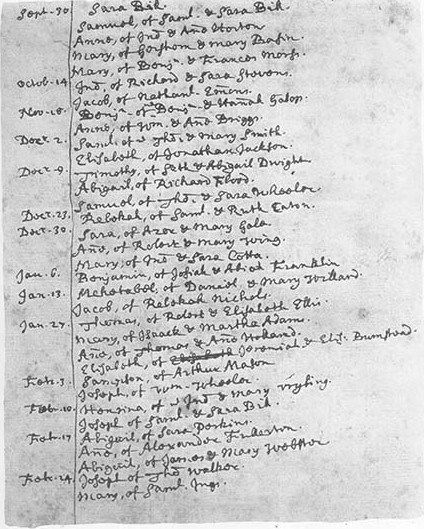 Sept-30. Sara Bik.
Samuel, of Saml. & Sara Bik.
Anne, of Jno & Ane Horton
Mary, of Gershom & Mary
Mary, of Benjn. & Frances Morss.
Octob-14 Jno, of Richard & Sara Stevens.
Jacob, of Nathanl. Emons.
Nov-18. Benjn. of Benjn. & Hanah Galop.
Anne, of Wm. & Ane Briggs.
Decr. 2. Saml. of Tho: & Mary Smith.
Elisabeth, of Jonathan Jackson.
Decr- 9. Timothy, of Seth & Abigail Dwight
Abigail, of Richard Flood.
Samuel of Tho: & Sara Wheeler
Decr. 23. Rebekah, of Saml. & Ruth Eaton.
Decr-30. Sara, of Azor & Mary Gale.
Ane, of Robert & Mary Wing.
Mary, of Jno & Sara Cotta.
Jan. 6. Benjamin, of Josiah & Abiah Franklin
Jan-13. Mehetabel, of Daniel, & Mary Willard.
Jacob, of Rebekah Nichols.
Jan-27. Thomas, of Robert & Elisabeth Ellis.
Mary, of Isaack & Martha Adams.
Ane, of Thomas & Ane Holland.
Elisabeth, of Jeremiah & Elis: Bumstead.
Febr. 3. of Arthur Mason
Joseph, of Wm. Wheeler.
Febr. 10. of Jno & Mary
Joseph of Saml. & Sara Bik.
Febr. 17 Abigail, of Sara Perkins.
Ane, of Alexander Fullerton.
Abigail, of James & Mary Webster
Febr. 24. Joseph of Tho: Walker.
Mary, of Saml.